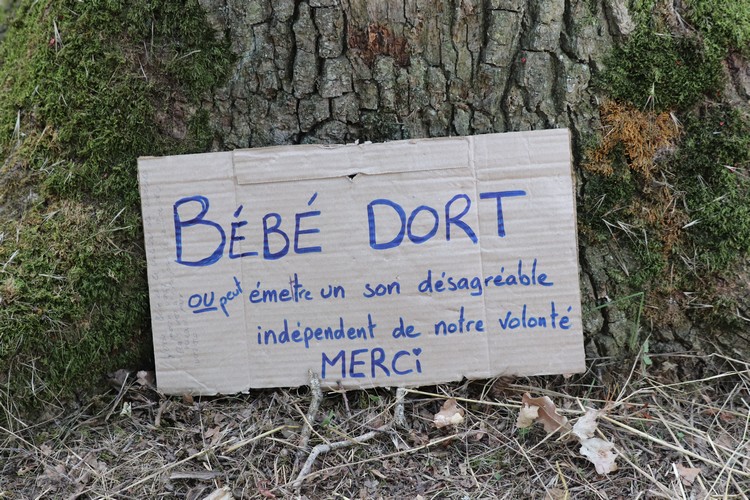 BÉBÉ DORT
OU peut émettre un son désagréable
indépendent de notre volonté
MERCi